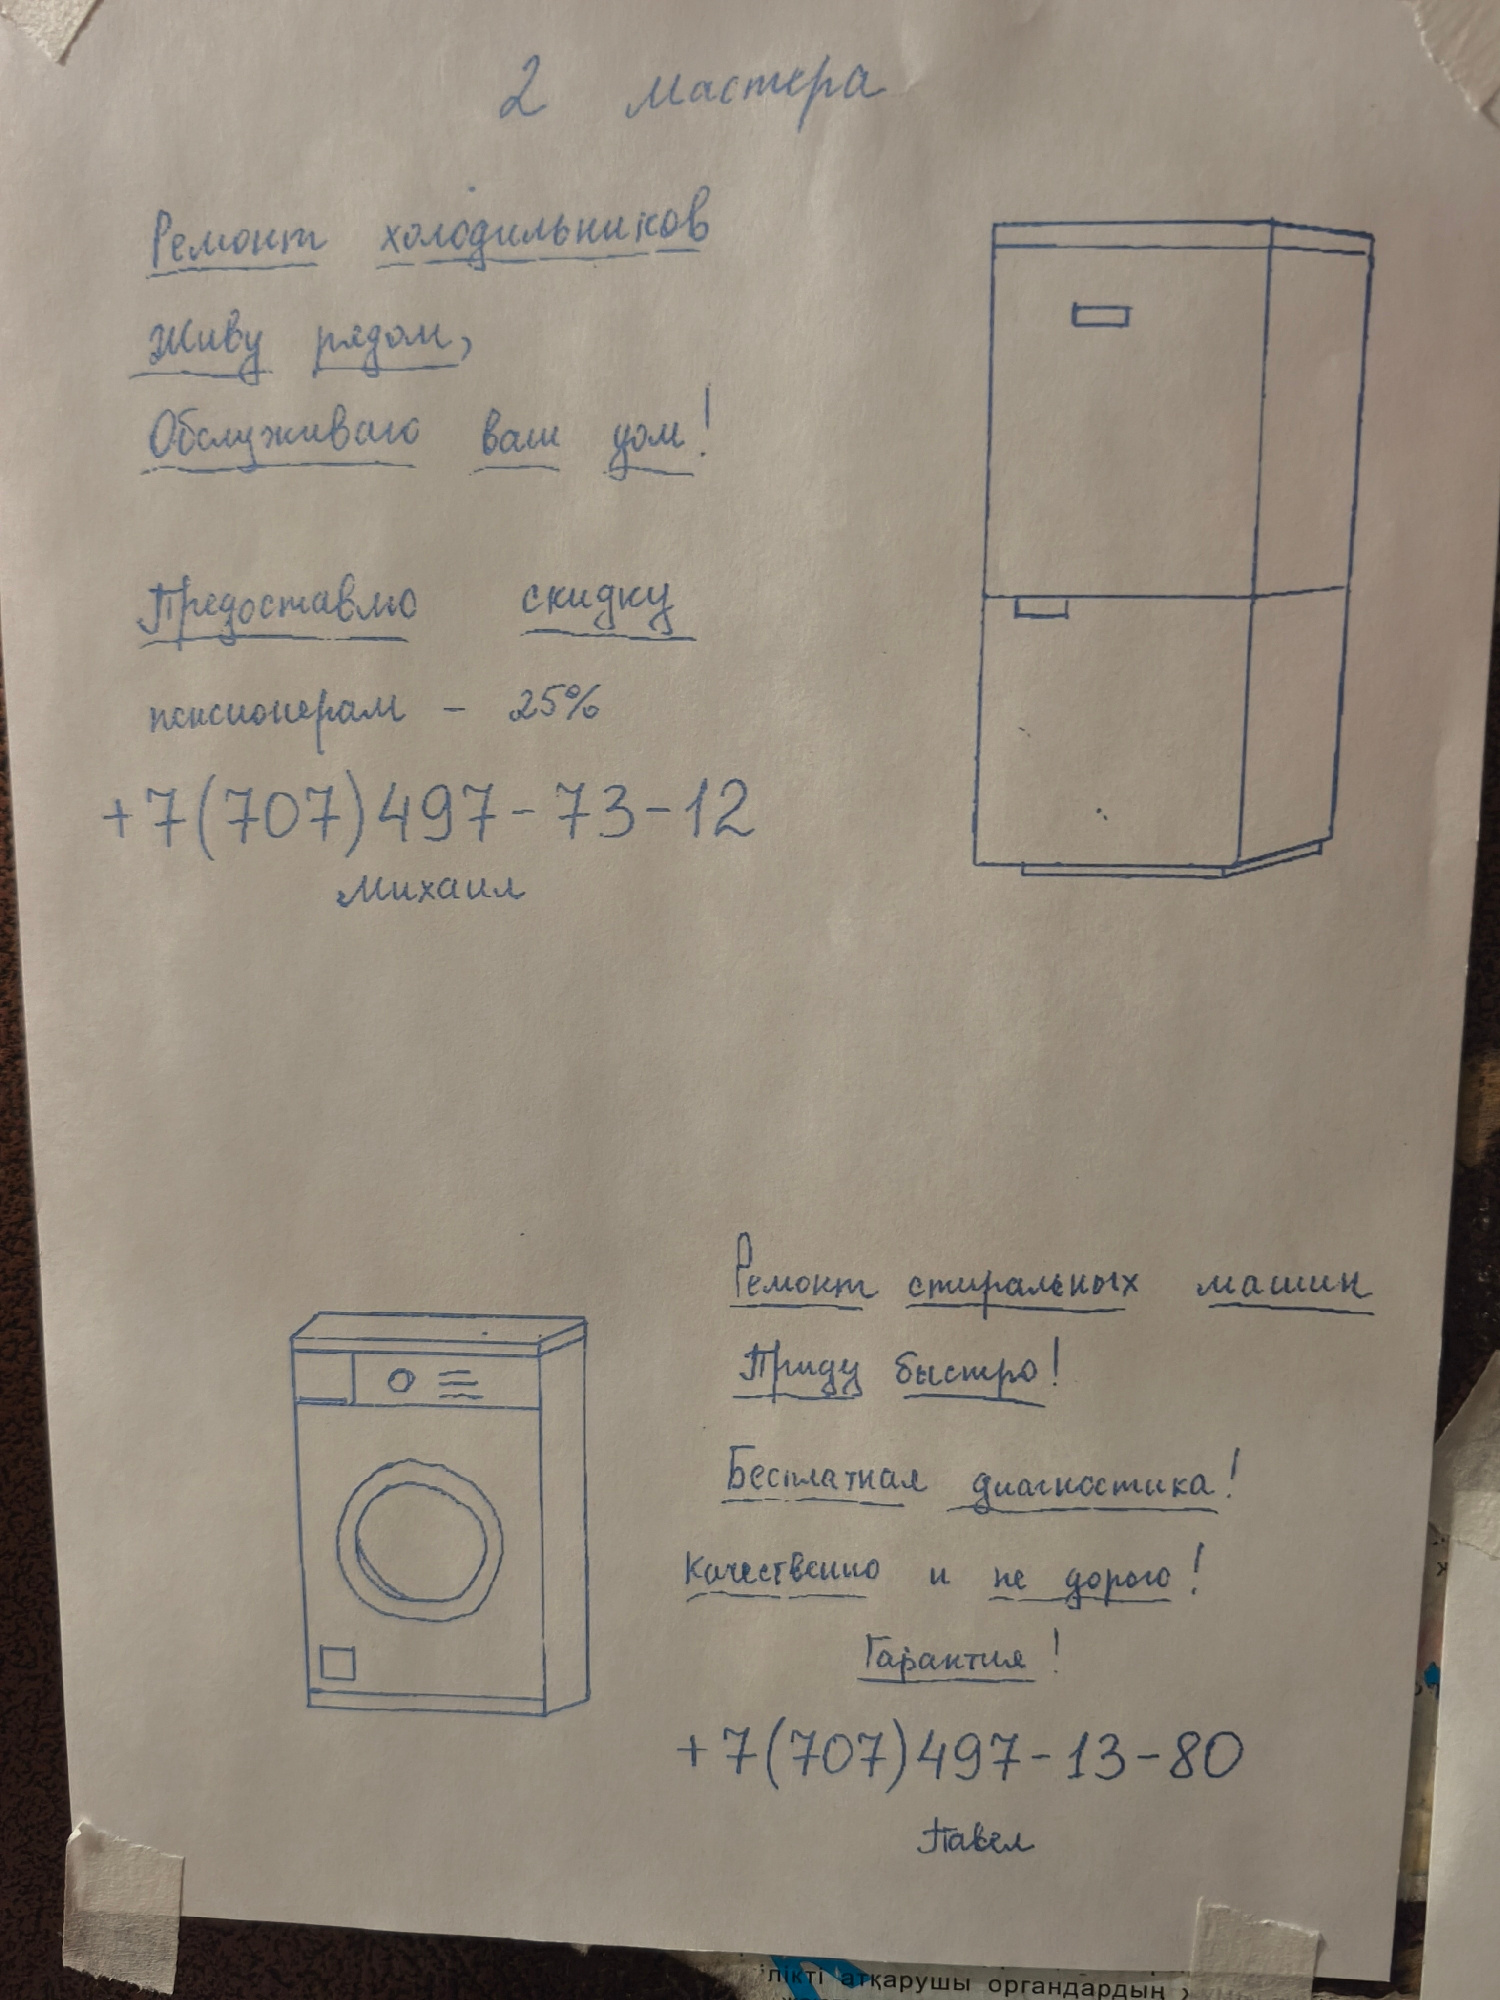 2 мастера
Ремонт холодильников
Живу рядом,
Обслуживаю ваш дом!
Предоставлю скидку
пенсионерам - 25%
+7(707)497-73-12
Михаил
Ремонт стиральных машин
Приду быстро!
Бесплатная диагностика!
Качественно и не дорого!
Гарантия!
+7(707)497-13-80
Павел
лікті атқарушы органдардың